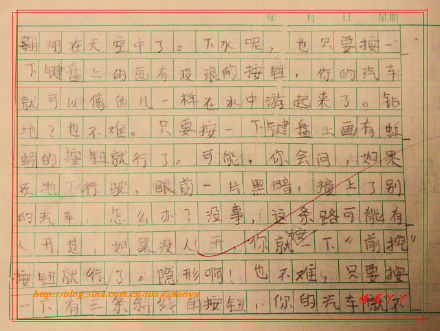 年 月 日 星期
翱翔在天空中了。下水呢，也只要按一
下键盘上的画有波浪的按钮，你的汽车
就可以像鱼儿一样在水中游起来了。钻
地？也不难。只要按一下键盘上画有蚯
蚓的按钮就行了。可能，你会问，如果
在地下行驶，眼前一片黑暗，撞上了别
的汽车，怎么办？没事，这条路可能有
人开过，如果没人开，你就按一下“前挖”
按钮就行了。隐形啊！也不难，只要按
一下有三条斜线的按钮，你的汽车就不
http://blog.sina.com.cn/